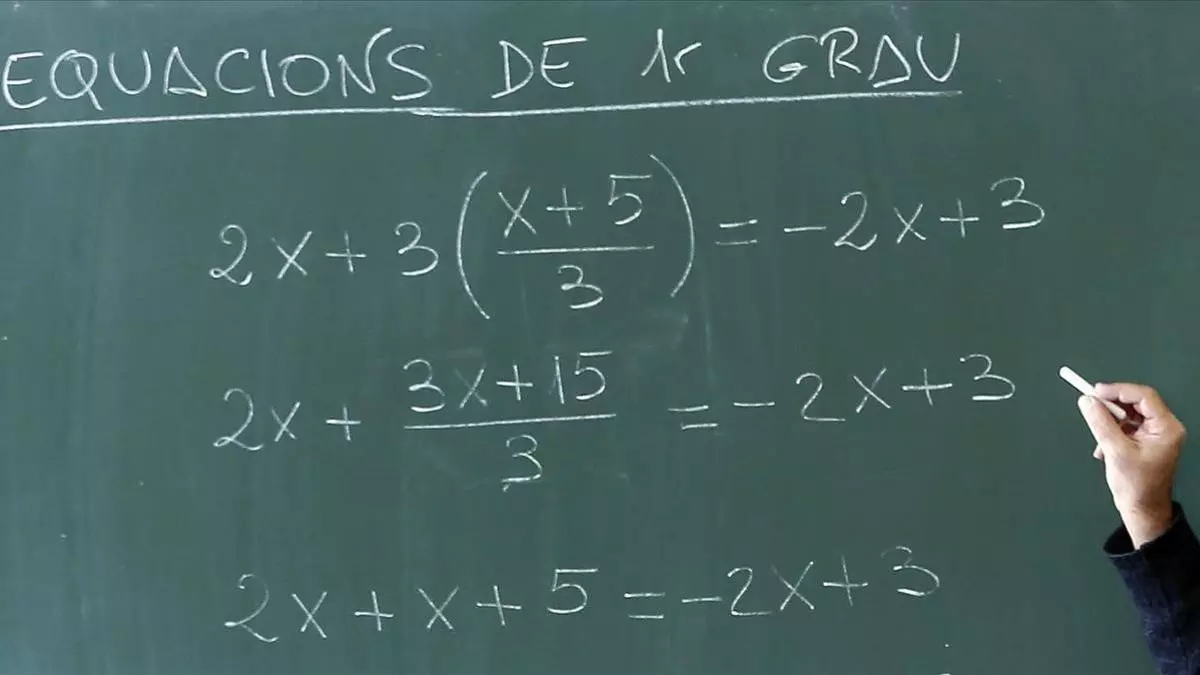 EQUACIONS DE 1r GRAU
2x + 3 (x + 5 / 3) = - 2x + 3
2x + 3x + 15 / 3 = - 2x + 3
2x + x + 5 = - 2x + 3